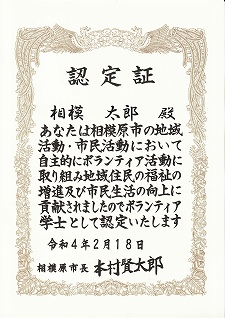 認定証
相模 太郎 殿
あなたは相模原市の地域
活動・市民活動において
自主的にボランティア活動に
取り組み地域住民の福祉の
増進及び市民生活の向上に
貢献されましたのでボランティア
学士として認定いたします
令和4年2月18日
相模原市長 本村賢太郎